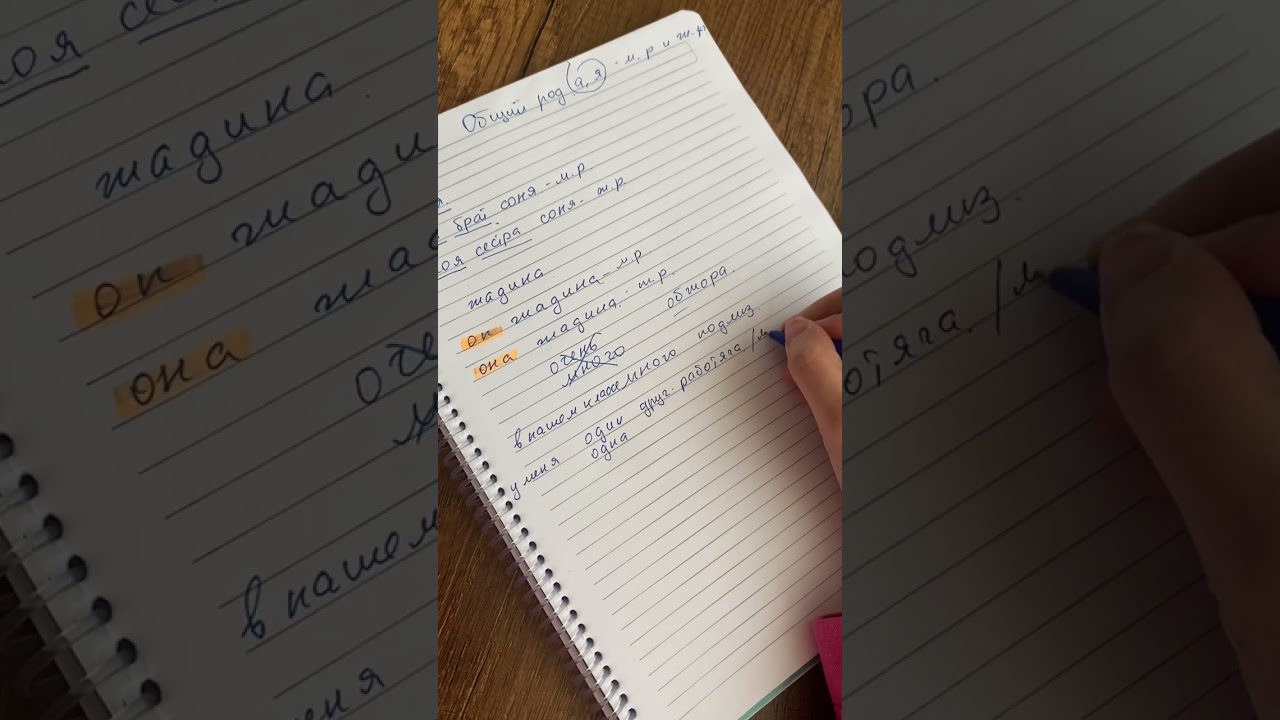 Общий род (а, я) - м.р и ж.р
брат соня - м.р
моя сестра соня - ж.р.
жадина.
он жадина - м.р
она жадина - ж.р.
очень обжора.
много
в нашем классе много подлиз.
у меня один друг. работяга. /м
одна